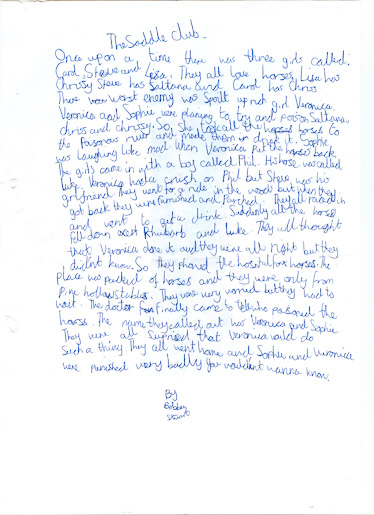 The Saddle Club.
Once upon a time there was three girls called:
Carol, Stevie and Lisa. They all love horses, Lisa has
Chrissy Stevie has Saltana and Carol has Chris
There worst enemy was Spoilt up rich girl Veronica.
Veronica and Sophie were planning to try and poison Saltana,
chris and chrissy. So, She took all the horses to
the Poisonous river and made them drink it. Sophie
was laughing like mad. When Veronica put the horses back
the girls came in with a boy called Phil. His horse was called
Luke. Veronica had a crush on Phil but Stevie was his
girlfriend. They went for a ride in the woods but when they
got back they were famished and Parched. They all raced in
and went to get a drink. Suddenly all the horses
fell down exept Rhubarb and Luke. They all thought
that Veronica done it and they were all right but they
didn't know. So they phoned the hospital for horses. The
place was packed of horses and they were only from
Pine hollow stables. They were very worried but they had to
wait. The doctor finally came to tell who poisoned the
horses. The name they called out was Veronica and Sophie.
They were all Suprised that Veronica would do
Such a thing. They all went home and Sophie and Veronica
were punished very badly you wouldent wanna know.
By
Stewart